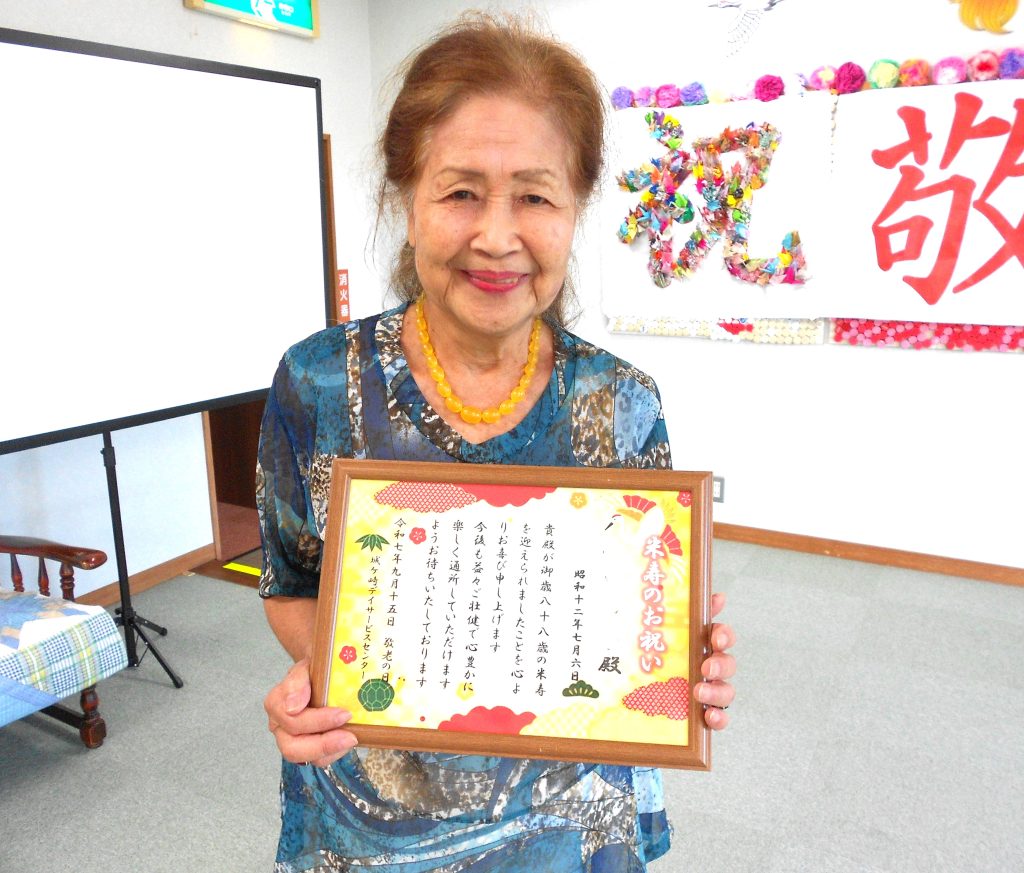 祝
敬
消火器
米寿のお祝い
殿
昭和十二年七月六日
貴殿が御歳八十八歳の米寿
を迎えられましたことを心よ
りお喜び申し上げます
今後も益々ご壮健で心豊かに
楽しく通所していただけます
ようお待ちいたしております
令和七年九月十五日 敬老の日
城ヶ崎デイサービスセンター